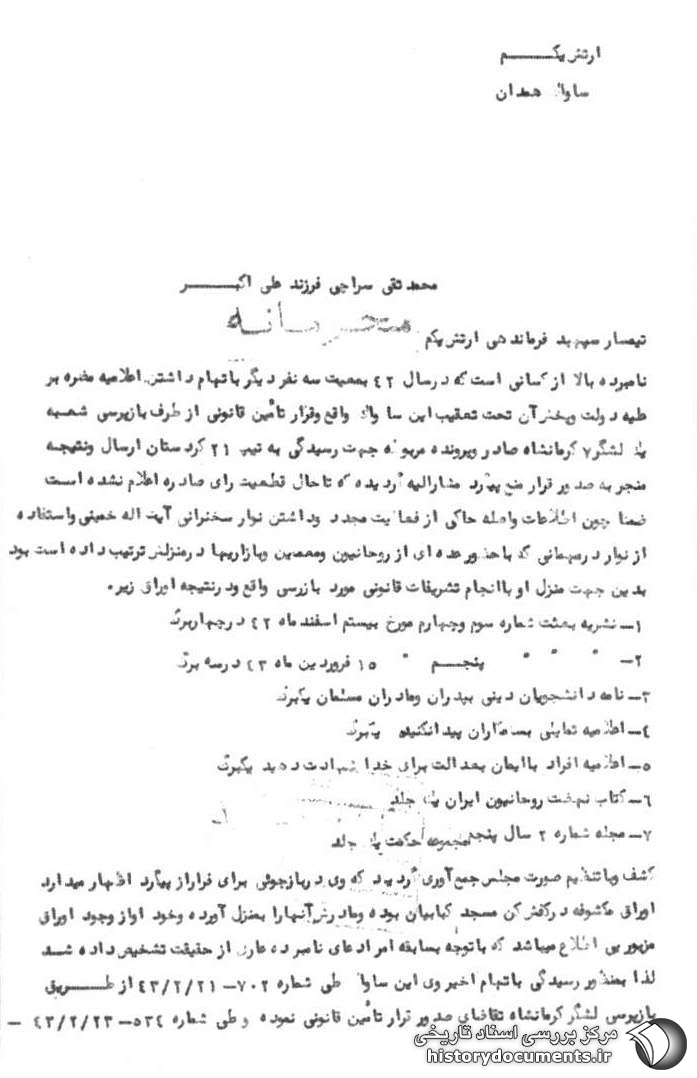 ارتش یکم
ساواک همدان
محمد تقی سراجی فرزند علی اکبر
محرمانه
تیمسار سپهبد فرماندهی ارتش یکم
نامبرده بالا از کسانی است که در سال ۴۲ بمعیت سه نفر دیگر باتهام داشتن اعلامیه مضره بر
علیه دولت وپخش آن تحت تعقیب این ساواک واقع وقرار تأمین قانونی از طرف بازپرسی شعبه
یک لشگر ۷ کرمانشاه صادر وپرونده مربوطه جهت رسیدگی به تیپ ۲۱ کردستان ارسال ونتیجه
منجر به صدور قرار منع پیگرد مشارالیه گردیده که تاحال قطعیت رای صادره اعلام نشده است
ضمنا چون اطلاعات واصله حاکی از فعالیت مجدد وداشتن نوار سخنرانی آیت اله خمینی واستفاده
از نوار درمیهمانی که باحضور عده ای از روحانیون ومعممین وبازاریها درمنزلش ترتیب داده است بود
بدین جهت منزل او باانجام تشریفات قانونی مورد بازرسی واقع ودرنتیجه اوراق زیر.
۱– نشریه بعثت شماره سوم وچهارم مورخ بیستم اسفند ماه ۴۲ درچهاربرگ
۲– " " " پنجم " ۱۵ فروردین ماه ۴۳ درسه برگ
۳– نامه دانشجویان دینی بپدران ومادران مسلمان یکبرگ
۴– اعلامیه تمایلی بستمکاران پیدانکنید یکبرگ
۵– اعلامیه افراد باایمان بعدالت برای خدا شهادت دهید یکبرگ
۶– کتاب نهضت روحانیون ایران یک جلد
۷– مجله شماره ۲ سال پنجم مجموعه حکمت یک جلد
کشف وباتنظیم صورت مجلس جمع آوری گردید که وی دربازجوئی برای فراراز پیگرد اظهار میدارد
اوراق مکشوفه درکفش کن مسجد کبابیان بوده ومادرش آنهارا بمنزل آورده وخود اواز وجود اوراق
مزبور بی اطلاع میباشد که باتوجه بسابقه امر ادعای نامبرده عاری از حقیقت تشخیص داده شد
لذا بمنظور رسیدگی باتهام اخیر وی این ساواک طی شماره ۷۰۲– ۴۳/۲/۲۱ از طریق
بازپرسی لشگر کرمانشاه تقاضای صدور قرار تأمین قانونی نموده و طی شماره ۵۳۴– ۴۳/۲/۲۳ –
مرکز بررسی اسناد تاریخی
historydocuments.ir